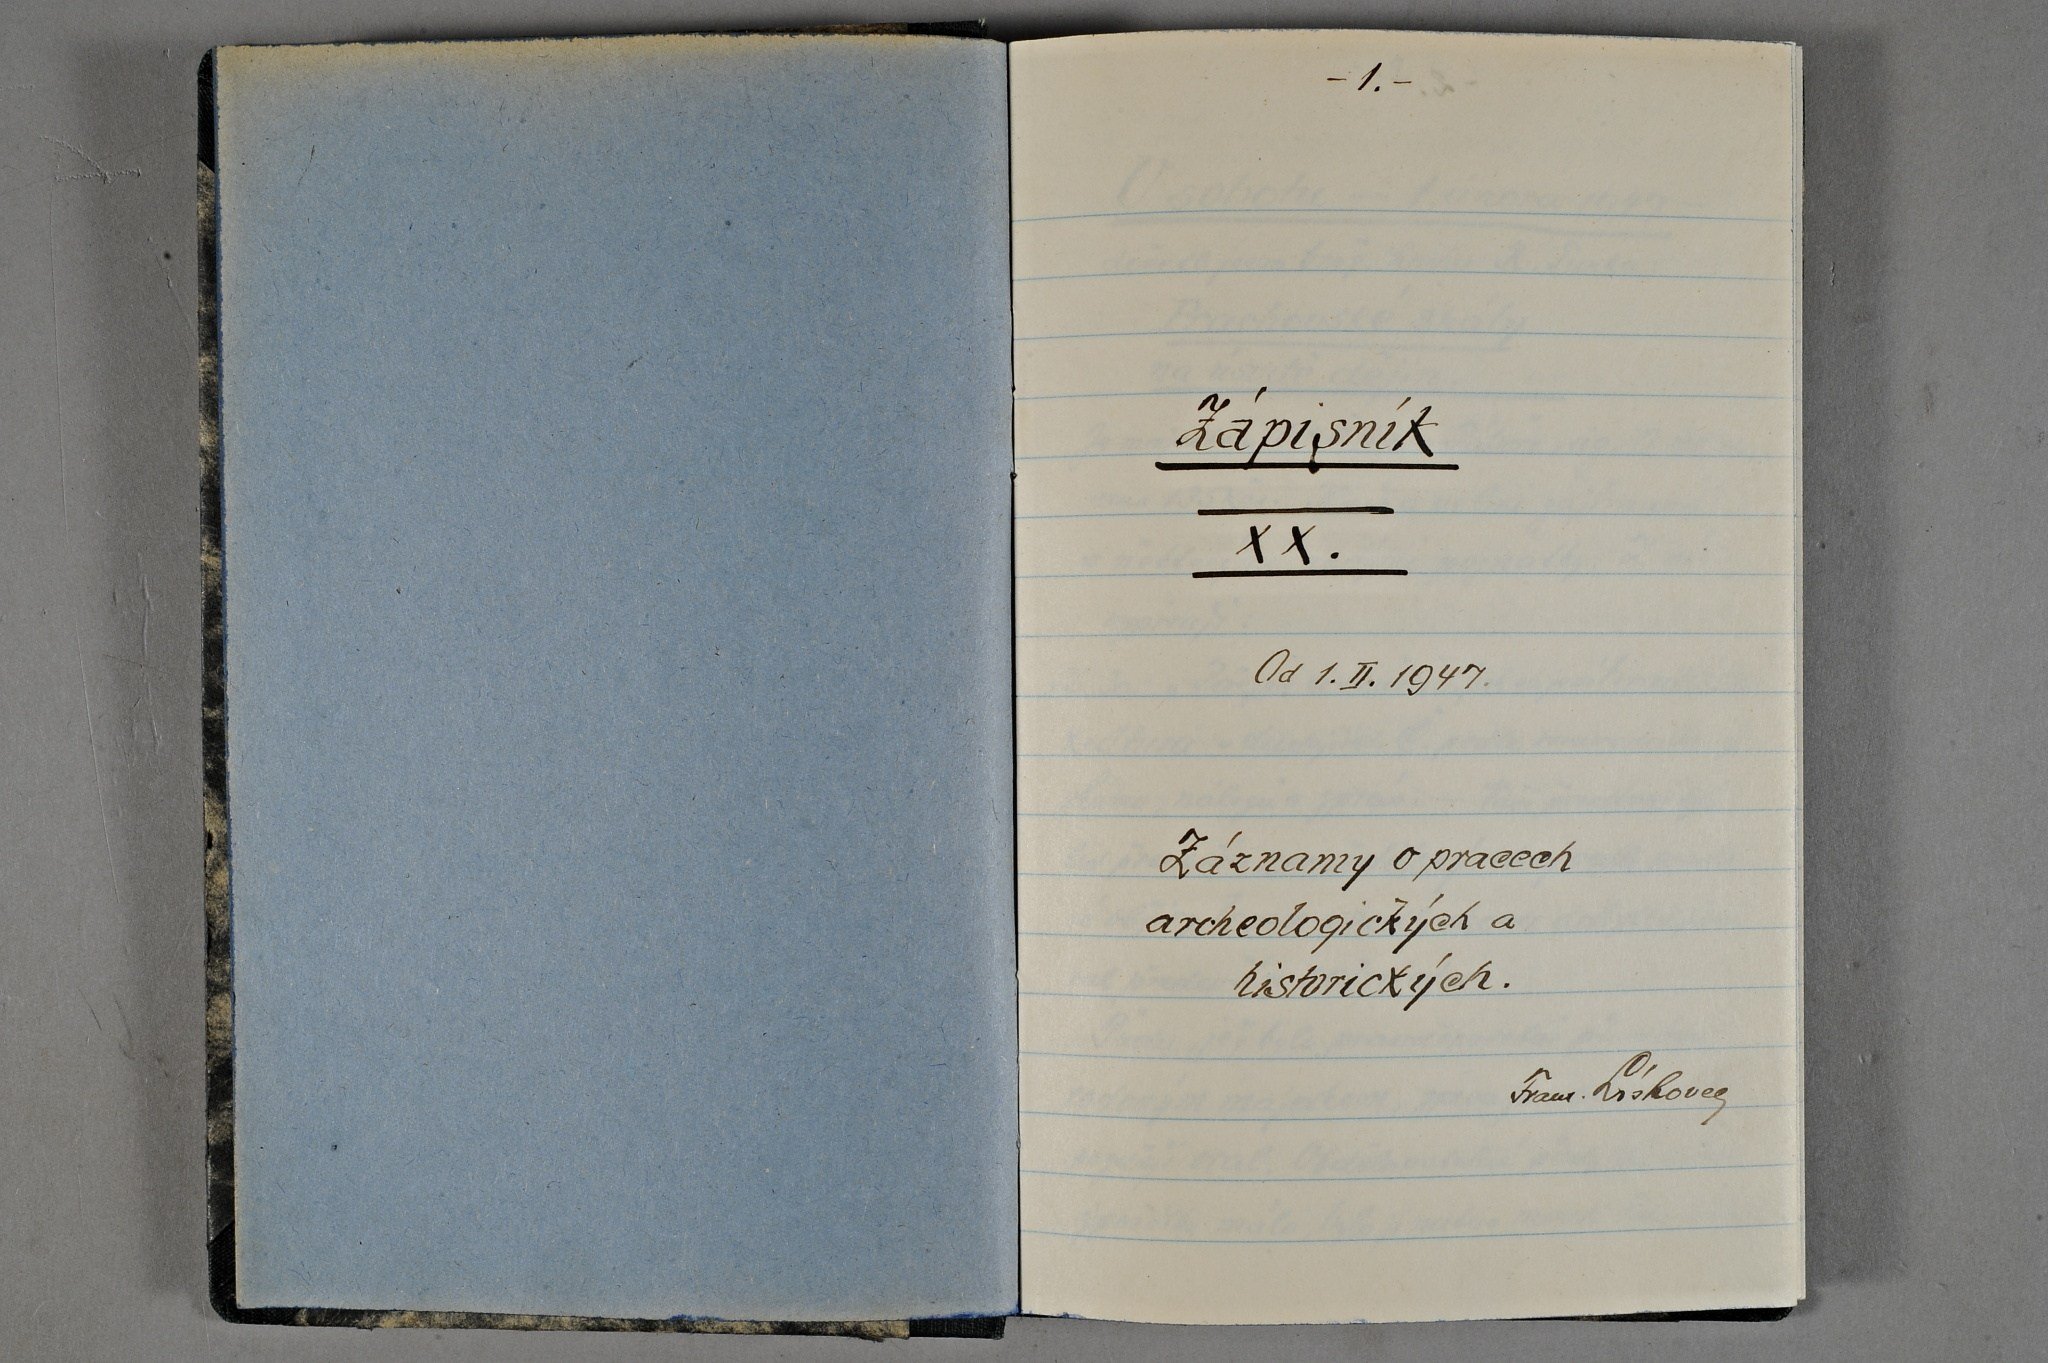 - 1. -
Zápisník
XX.
Od 1. II. 1947.
Záznamy o pracech
archeologických a
historických.
Fran. Lískovec